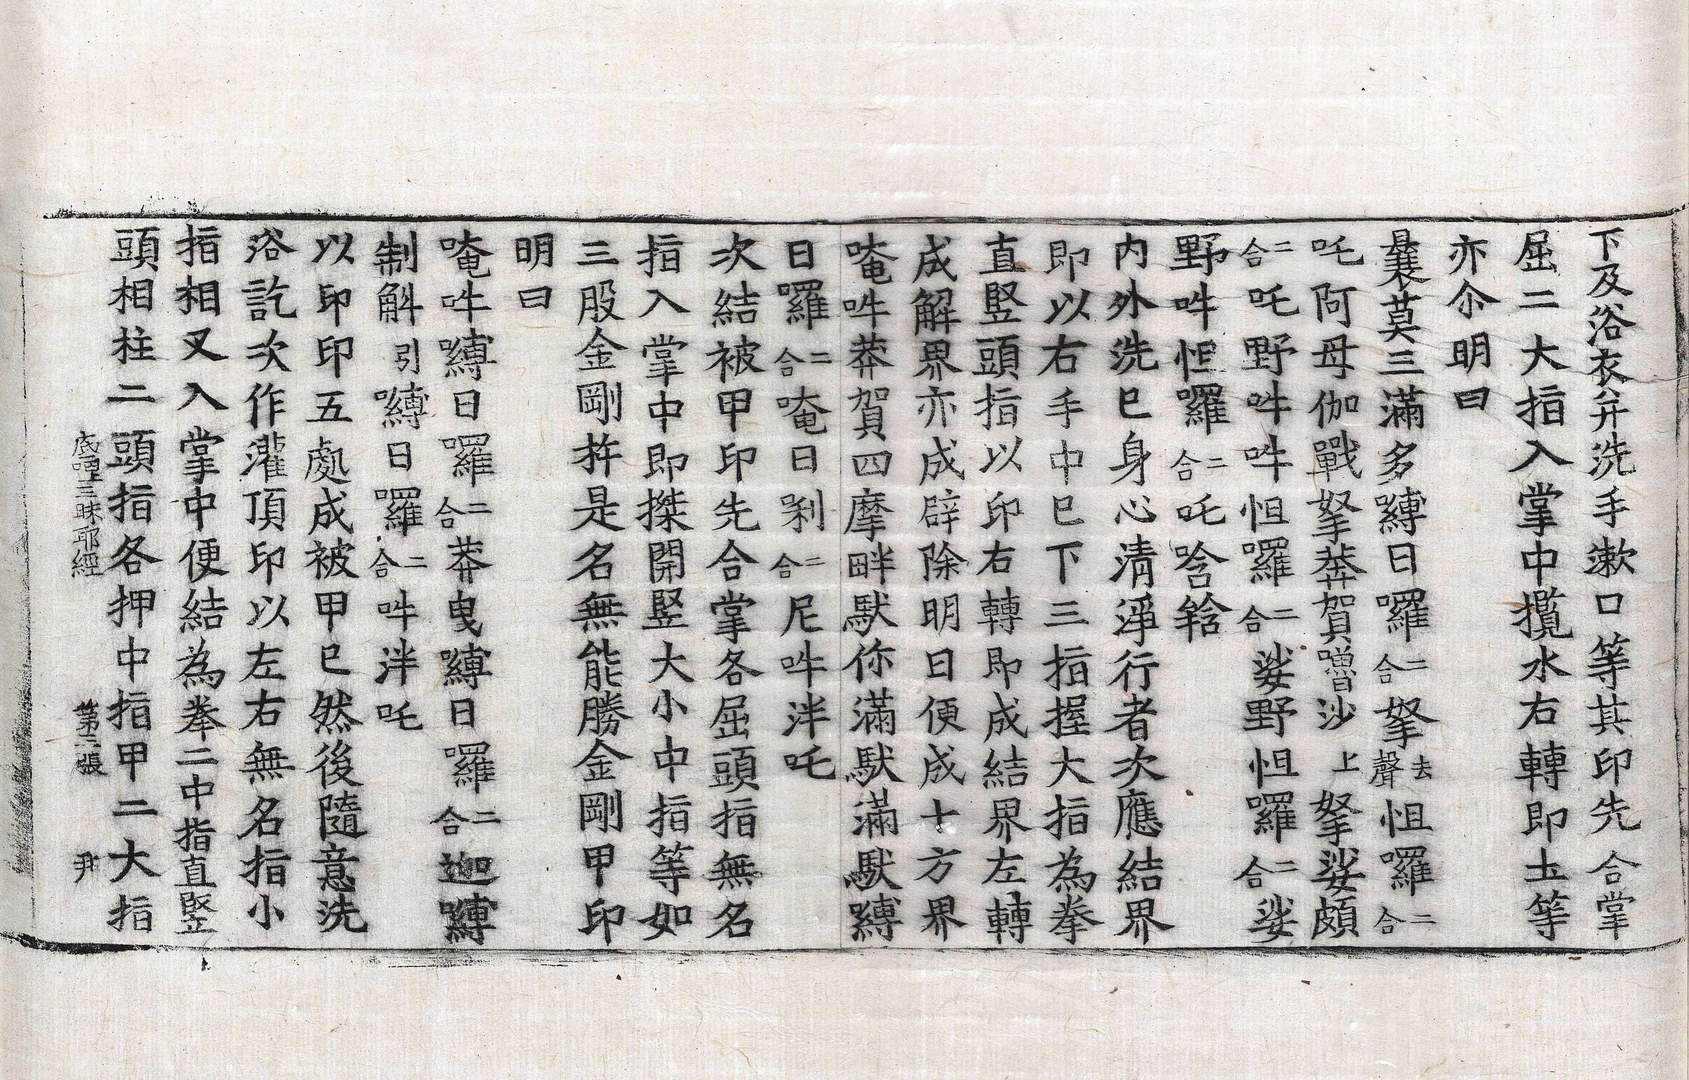 下及浴衣并洗手漱口等其印先合掌
屈二大指入掌中攬水右轉即土等
亦尒明曰
曩莫三滿多嚩日囉二合拏去聲怛囉二合
吒阿母伽戰拏莽賀嚕沙上拏娑頗
二合吒野吽吽怛囉二合娑野怛囉二合娑
野吽怛囉二合吒唅𤚥
内外洗已身心清淨行者次應結界
即以右手中已下三指握大指為拳
直竪頭指以印右轉即成結界左轉
成解界亦成辟除明曰便成十方界
唵吽莽賀四摩畔馱你滿馱滿馱嚩
日囉二合唵日剎二合尼吽泮吒
次結被甲印先合掌各屈頭指無名
指入掌中即搩開竪大小中指等如
三股金剛杵是名無能勝金剛甲印
明曰
唵吽嚩日囉二合莽曳嚩日囉二合迦嚩
制斛引嚩日囉二合吽泮吒
以印印五處成被甲已然後隨意洗
浴訖次作灌頂印以左右無名指小
指相叉入掌中便結為拳二中指直竪
頭相柱二頭指各押中指甲二大指
底哩三昧耶經 第二張 尹